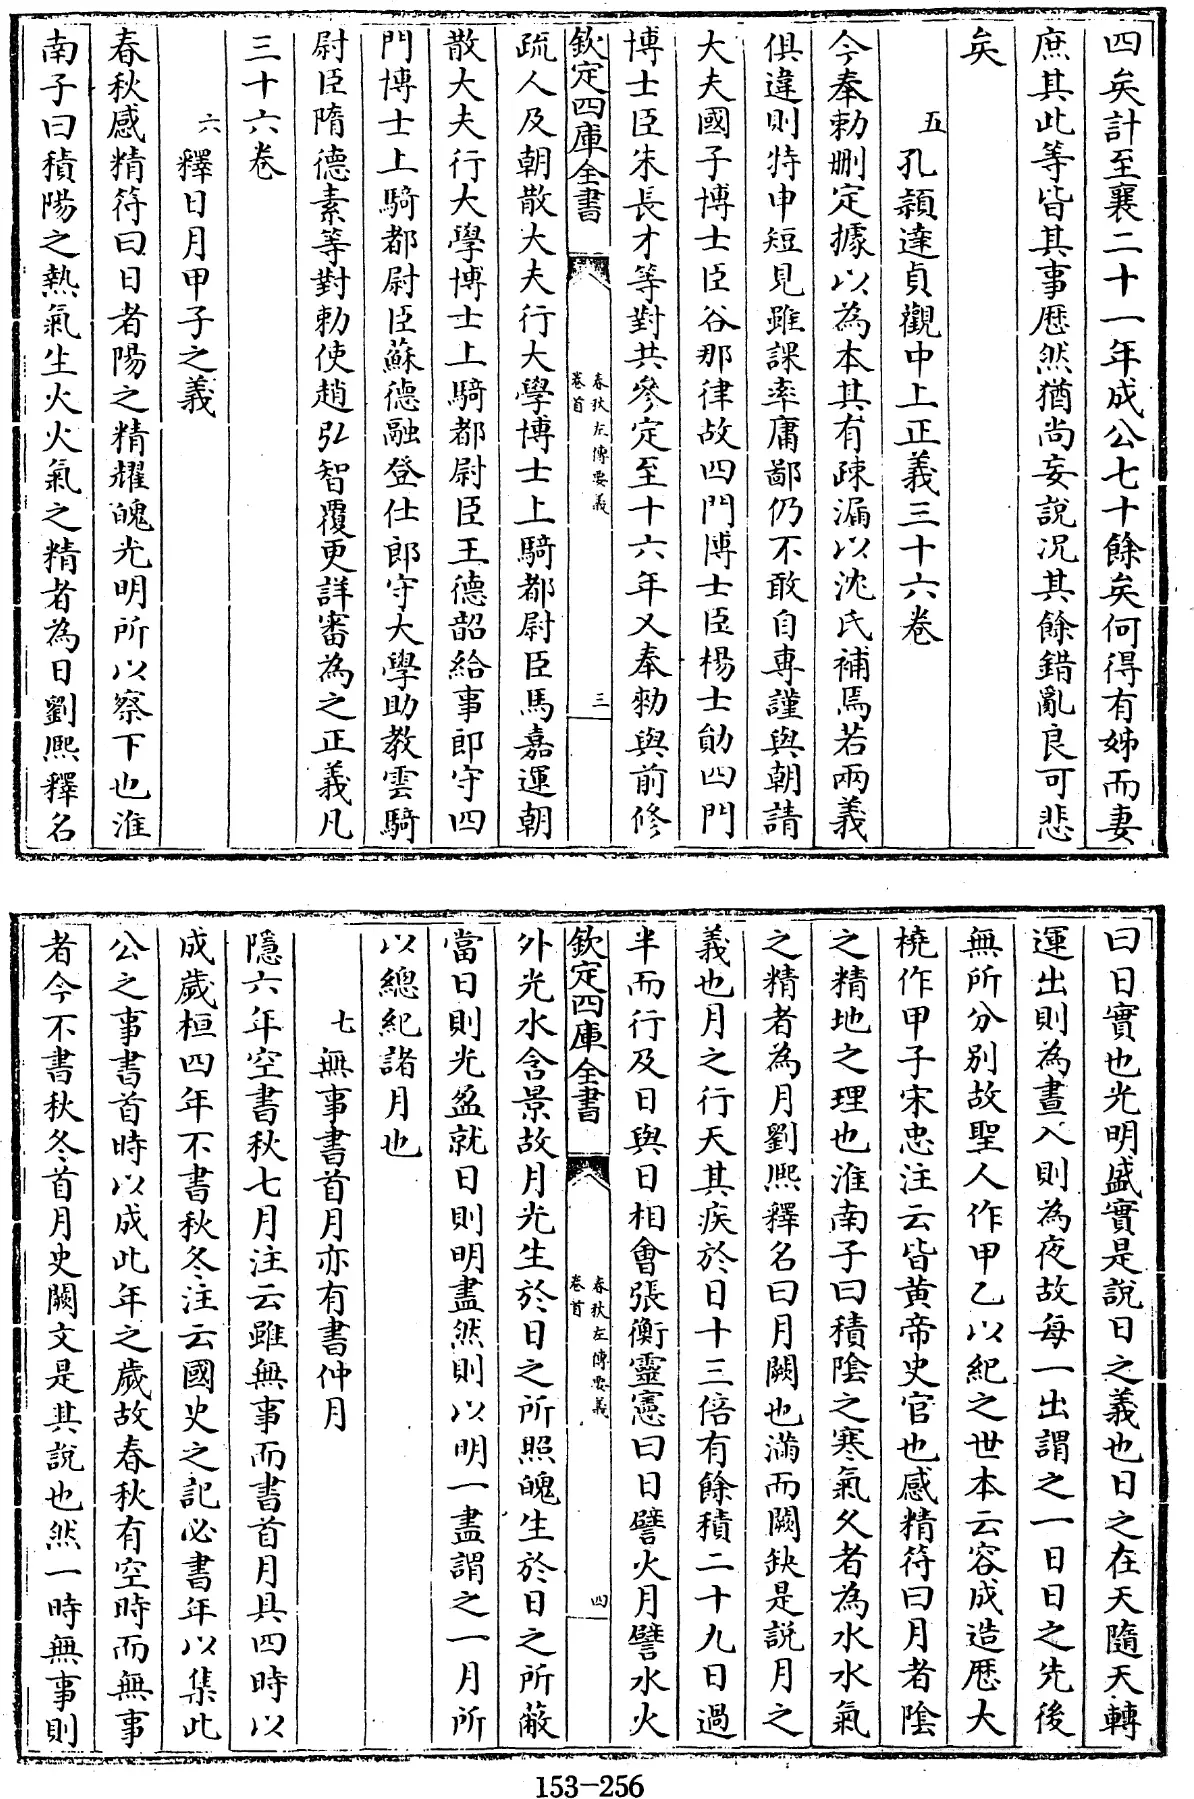 四矣計至襄二十一年成公七十餘矣何得有姊而妻
庶其此等皆其事歴然猶尚妄說况其餘錯亂良可悲
矣
五孔頴達貞觀中上正義三十六卷
今奉勅刪定據以為本其有疎漏以沈氏補焉若兩義
俱違則特申短見雖課率庸鄙仍不敢自専謹與朝請
大夫國子博士臣谷那律故四門博士臣楊士勛四門
博士臣朱長才等對共參定至十六年又奉勅與前修
欽定四庫全書
春秋左傳要義
卷首
三
疏人及朝散大夫行大學博士上騎都尉臣馬嘉運朝
散大夫行大學博士上騎都尉臣王德韶給事郎守四
門博士上騎都尉臣蘇德融登仕郎守大學助教雲騎
尉臣隋德素等對勅使趙弘智覆更詳審為之正義凡
三十六卷
六釋日月甲子之義
春秋感精符曰日者陽之精耀魄光明所以察下也淮
南子曰積陽之熱氣生火火氣之精者為日劉熙釋名
曰日實也光明盛實是說日之義也日之在天隨天轉
運出則為晝入則為夜故每一出謂之一日日之先後
無所分別故聖人作甲乙以紀之世本云容成造歴大
橈作甲子宋忠注云皆黄帝史官也感精符曰月者陰
之精地之理也淮南子曰積陰之寒氣久者為水水氣
之精者為月劉熙釋名曰月闕也滿而闕缺是説月之
義也月之行天其疾於日十三倍有餘積二十九日過
半而行及日與日相會張衡靈憲曰日譬火月譬水火
欽定四庫全書
春秋左傳要義
卷首
四
外光水含景故月光生於日之所照魄生於日之所蔽
當日則光盈就日則明盡然則以明一盡謂之一月所
以總紀諸月也
七無事書首月亦有書仲月
隱六年空書秋七月注云雖無事而書首月具四時以
成歲桓四年不書秋冬注云國史之記必書年以集此
公之事書首時以成此年之歲故春秋有空時而無事
者今不書秋冬首月史闕文是其說也然一時無事則
153-256